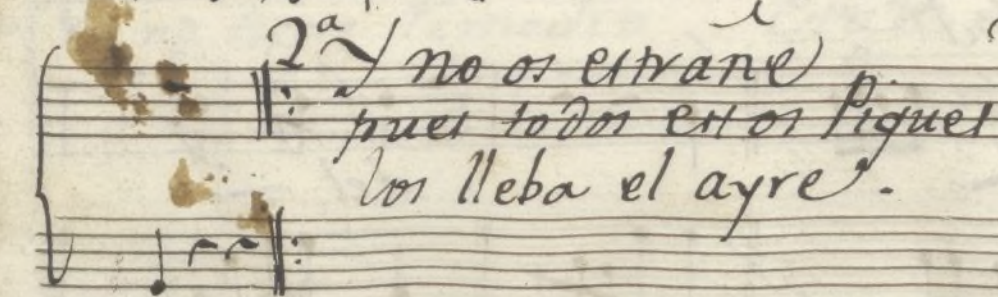 2ª Y no os estrañe
pues todos estos Piques
los lleba el ayre.